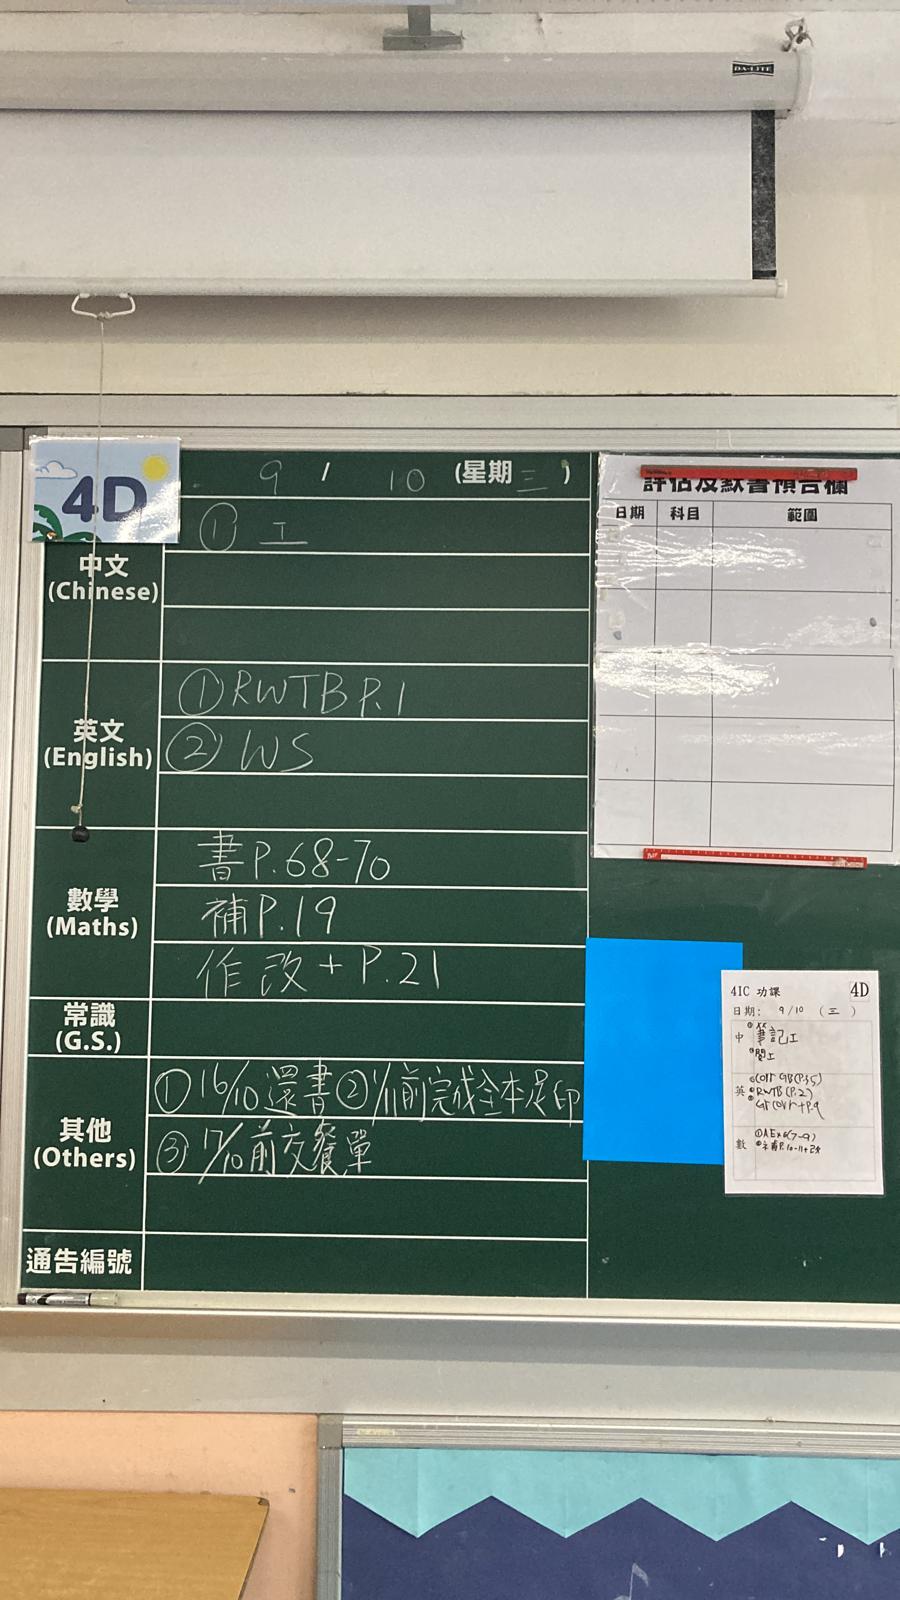 DA-LITE
4D
9 / 10 (星期三)
中文
(Chinese)
① 工
英文
(English)
① RWTB P.1
② WS
數學
(Maths)
書P.68-70
補P.19
作 改 + P.21
常識
(G.S.)
其他
(Others)
① 16/10 還書 ② 1/11前完成全本足印
③ 17/10前交餐單
通告編號
評估及默書預告欄
日期 科目 範圍
4IC 功課 4D
日期: 9/10 (三)
中
筆記工
閱工
英
Corr GB(P.35)
RWTB (P.2)
數